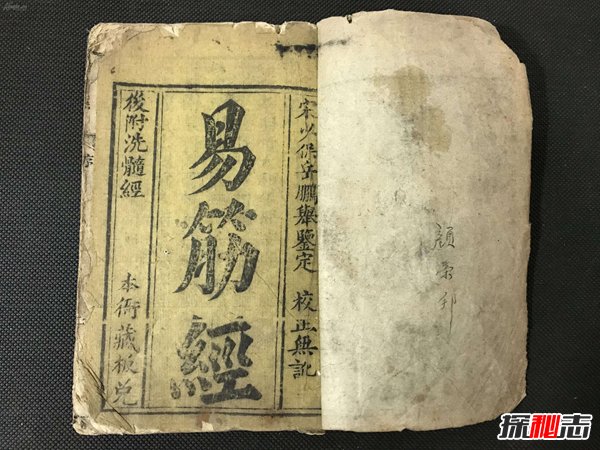 宋少保岳鵬舉鑒定 校正無訛
易筋經
後附洗髓經
本衙藏板兑
顏宗邦
探秘志